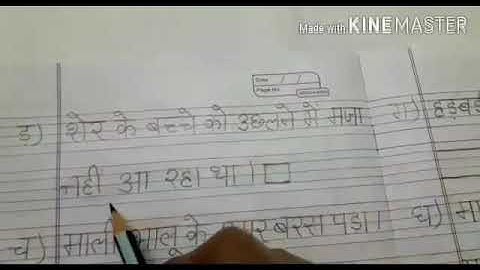 Made with KINEMASTER
Date / /
Page No.
ङ) शेर के बच्चे को उछलने में मजा
नहीं आ रहा था।
च) माली भालू के बरस पड़ा।
ग) हड़बड़
घ)